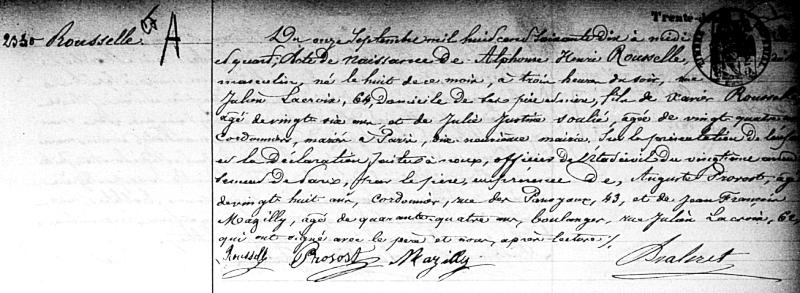 2330 Rousselle A
Trente
Du onze Septembre mil huit cent Soixante dix à midi
et quart, Acte de naissance de Alphonse Henri Rousselle,
masculin, né le huit de ce mois, à trois heures du soir, rue
Julien Lacroix, 64, Domicile de ses père et mère, fils de Xavier Roussel
agé de vingt six ans et de Julie Justine Soulié, agée de vingt quatre
cordonniers, mariés à Paris, dix neuvième mairie. Sur la présentation de l'enfant
et la déclaration faites à nous, officier de l'état civil du vingtième arron
de Paris, par le père, en présence de, Auguste Prosost, agé
de vingt huit ans, cordonnier, rue des Panoyaux, 43, et de Jean François
Mazilly, agé de quarante-quatre ans, boulanger, rue Julien Lacroix, 62,
qui ont signé avec le père et nous, après lecture /.
Rousselle Prosost Mazilly